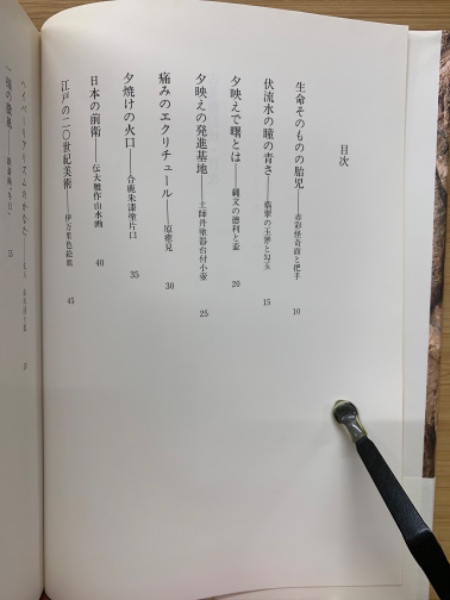 目次
生命そのものの胎児――赤彩怪奇面と把手 10
伏流水の瞳の青さ――翡翠の玉斧と勾玉 15
夕映えで曙とは――縄文の徳利と壷 20
夕映えの発進基地――土師丹塗器台付小壺 25
痛みのエクリチュール――原 30
夕焼けの火口――合鹿朱漆塗片口 35
日本の前衛――伝大雅作山水画 40
江戸の二〇世紀美術――伊万里色絵皿 45
55
ハイパーリアリズムのかなた